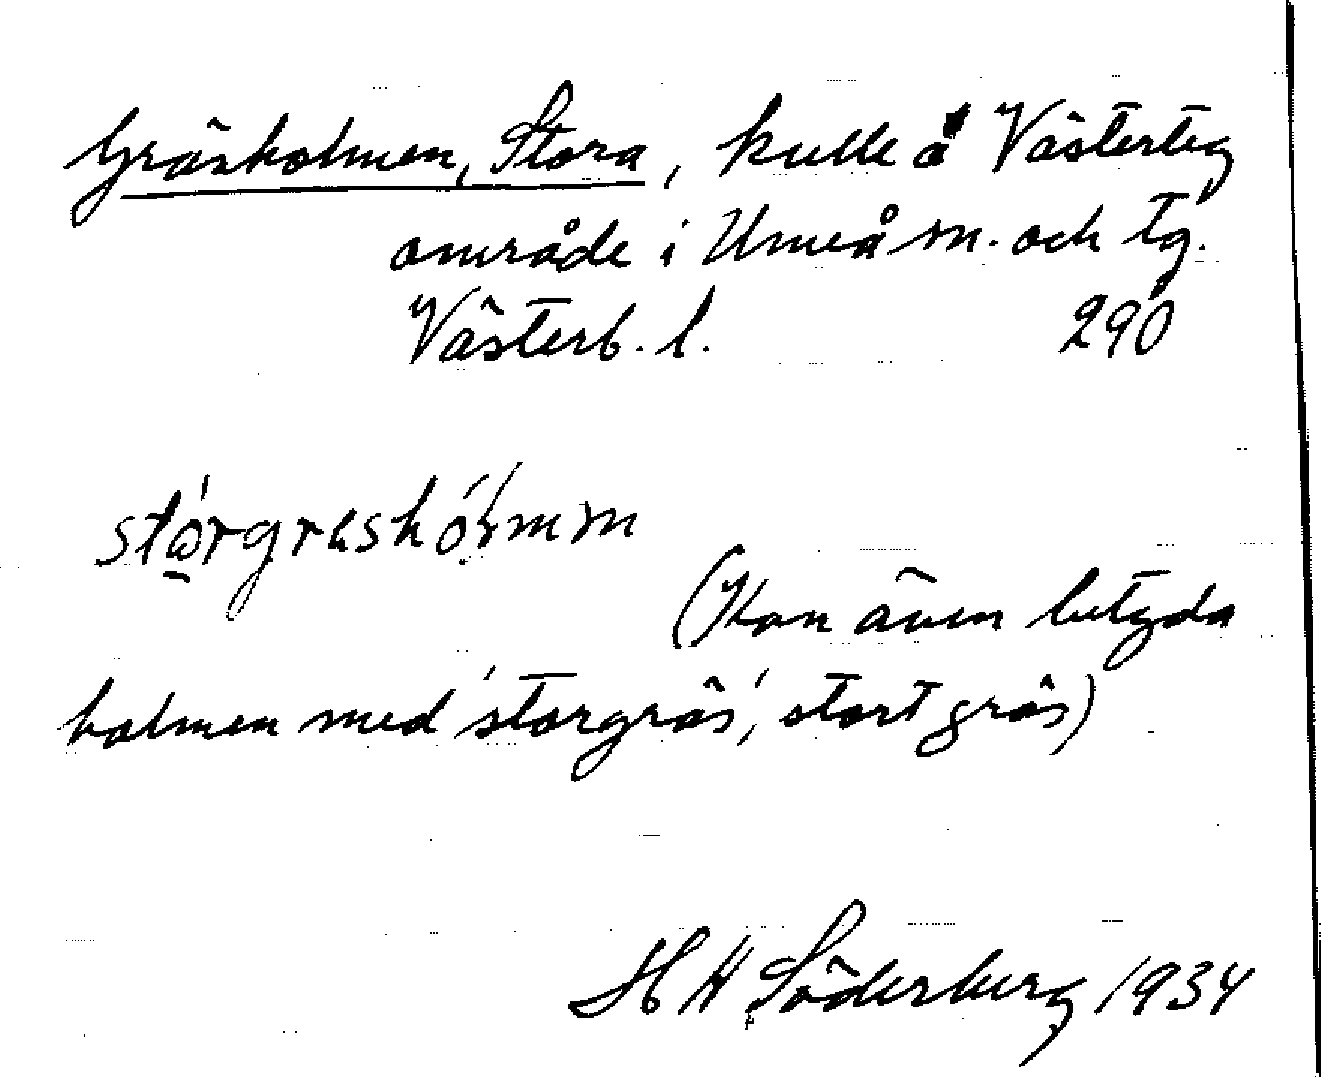 Gräsholmen, Stora, kulle å Västerteg
område i Umeå sn. och tg.
Västerb. l. 290
(Kan även betyda
holmen med 'storgräs', stort gräs)
H H Söderberg 1934